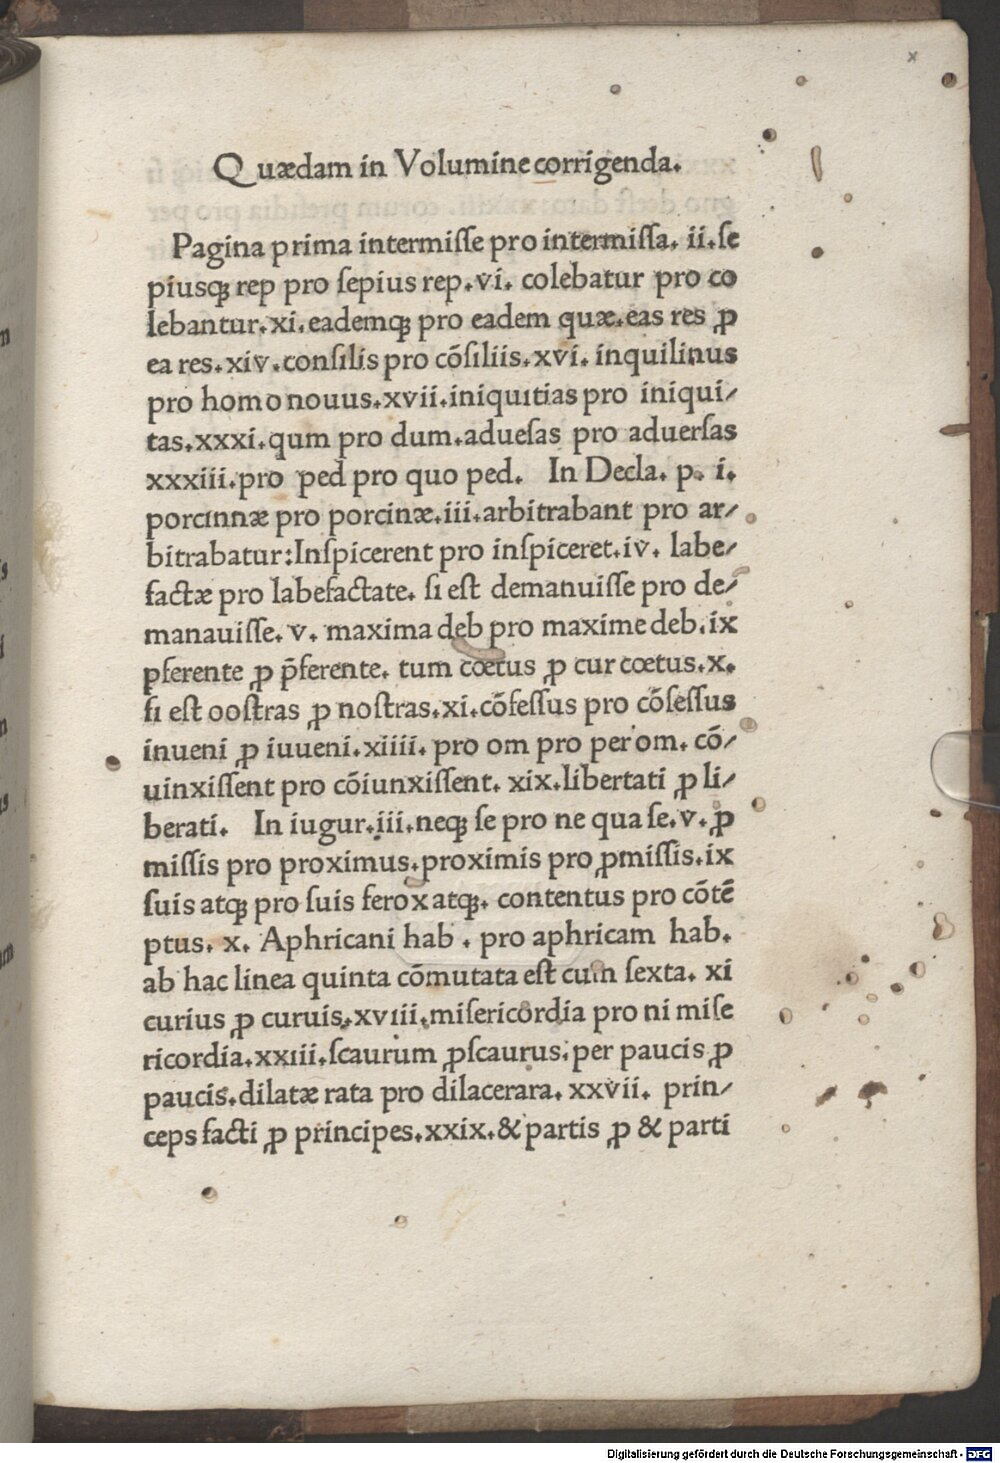 x
Quædam in Volumine corrigenda.
Pagina prima intermiſſe pro intermiſſa. ii. ſe
piusqꝫ rep pro ſepius rep. vi. colebatur pro co
lebantur. xi. eademqꝫ pro eadem quæ. eas res ꝓ
ea res. xiv. conſilis pro cõſiliis. xvi. inquilinus
pro homo nouus. xvii. iniquitias pro iniqui⸗
tas. xxxi. qum pro dum. adueſas pro aduerſas
xxxiii. pro ped pro quo ped. In Decla. p. i.
porcinnæ pro porcinæ. iii. arbitrabant pro ar⸗
bitrabatur: Inſpicerent pro inſpiceret. iv. labe⸗
factæ pro labefactate. ſi eſt demanuiſſe pro de⸗
manauiſſe. v. maxima deb pro maxime deb. ix
pferente ꝓ p̃ferente. tum cœtus ꝓ cur cœtus. x.
ſi eſt ooſtras ꝓ noſtras. xi. cõfeſſus pro cõſeſſus
inueni ꝓ iuueni. xiiii. pro om pro per om. cõ⸗
uinxiſſent pro cõiunxiſſent. xix. libertati ꝓ li⸗
berati. In iugur. iii. neqꝫ ſe pro ne qua ſe. v. ꝓ
miſſis pro proximus. proximis pro ꝓmiſſis. ix
ſuis atqꝫ pro ſuis ferox atqꝫ. contentus pro cõtẽ
ptus. x. Aphricani hab. pro aphricam hab.
ab hac linea quinta cõmutata eſt cum ſexta. xi
curius ꝓ curuis. xviii. miſericordia pro ni miſe
ricordia. xxiii. ſcaurum ꝓ ſcaurus. per paucis ꝓ
paucis. dilatæ rata pro dilacerara. xxvii. prin⸗
ceps facti ꝓ principes. xxix. & partis ꝓ & parti
Digitalisierung gefördert durch die Deutsche Forschungsgemeinschaft - DFG